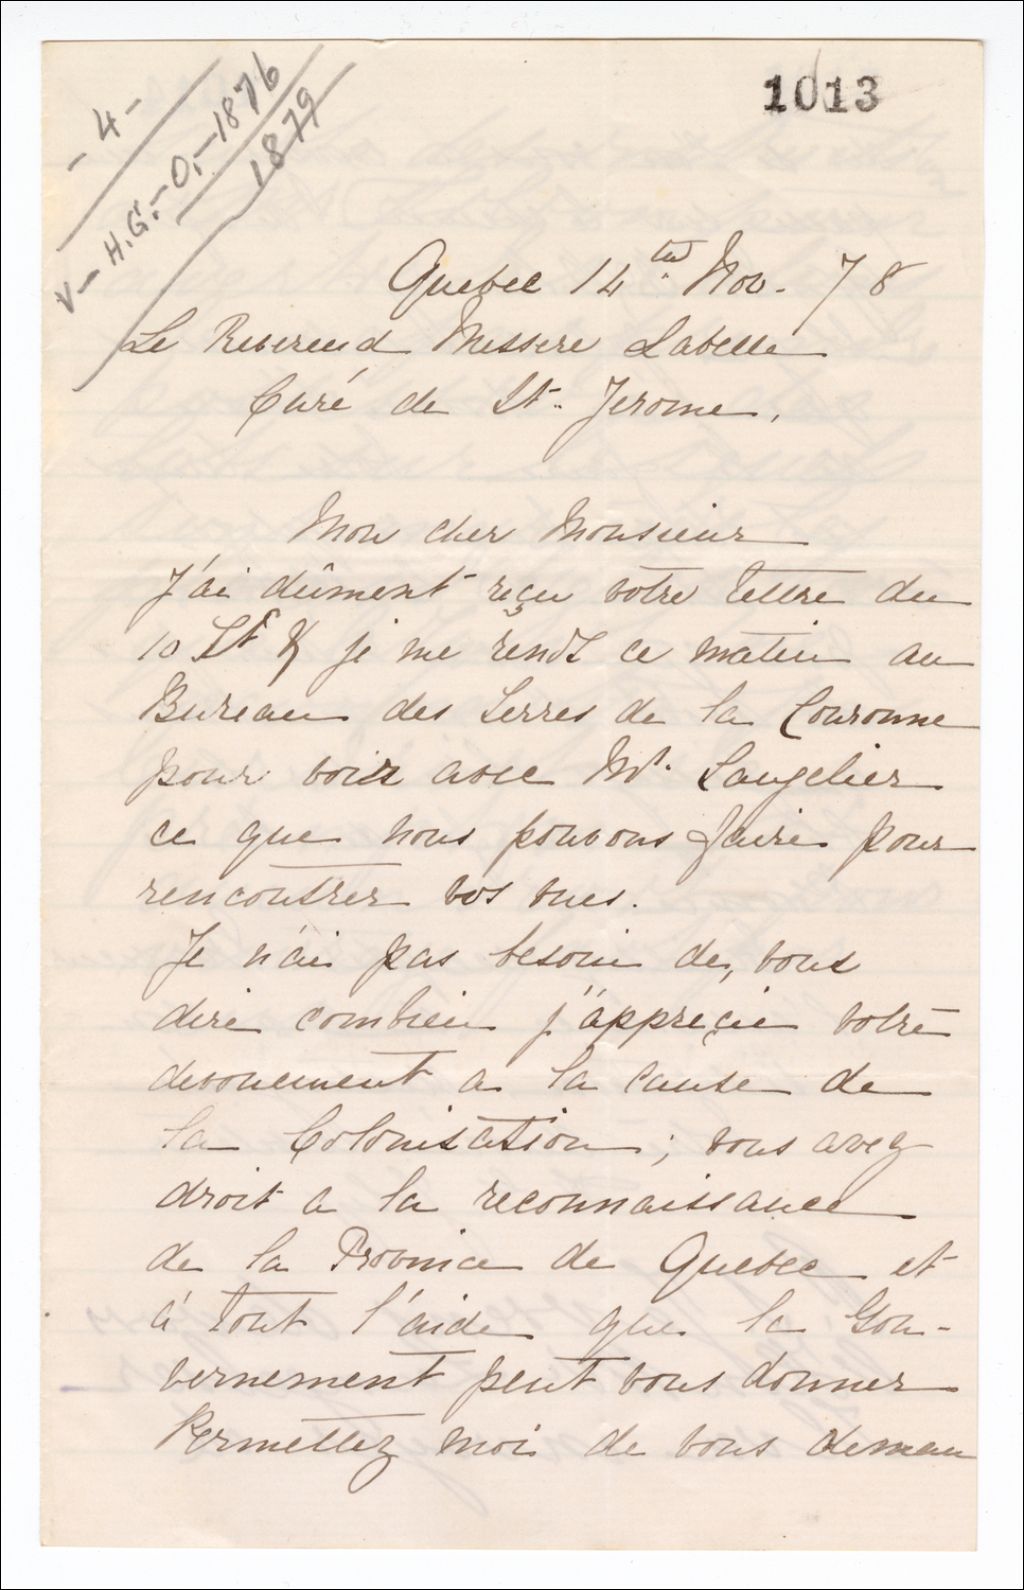 1013
- 4 -
V - H.G. - O. - 1876
1879
Quebec 14th Nov. 78
Le Reverend Messere Labelle
Curé de St. Jerome,
Mon cher Monsieur
J'ai dûment reçu votre lettre du
10 & je me rends ce matin au
Bureau des Terres de la Couronne
pour voir avec Mr. Langelier
ce que nous pouvons faire pour
rencontrer vos vues.
Je n'ai pas besoin de, vous
dire combien j'apprecie votre
devouement a la cause de
la Colonisation ; vous avez
droit a la reconnaissance
de la Province de Quebec et
à tout l'aide que le Gou-
vernement peut vous donner
Permettez moi de vous deman